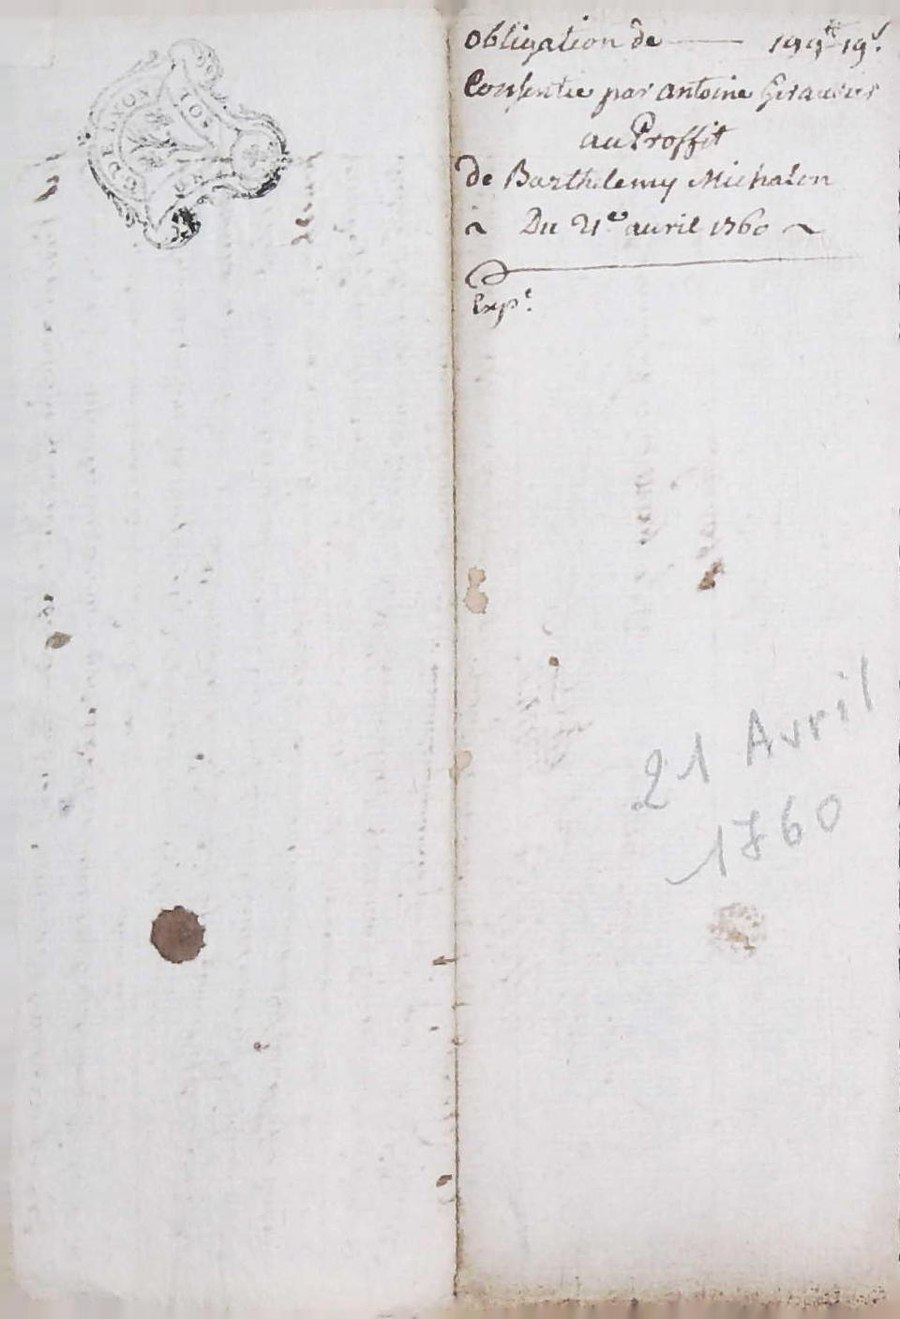 G DE LYON
obligation de — 199tt 19s
Consentie par antoine
au Proffit
de Barthelemy Michalon
~ Du 21e avril 1760 ~
Expe
21 Avril
1760